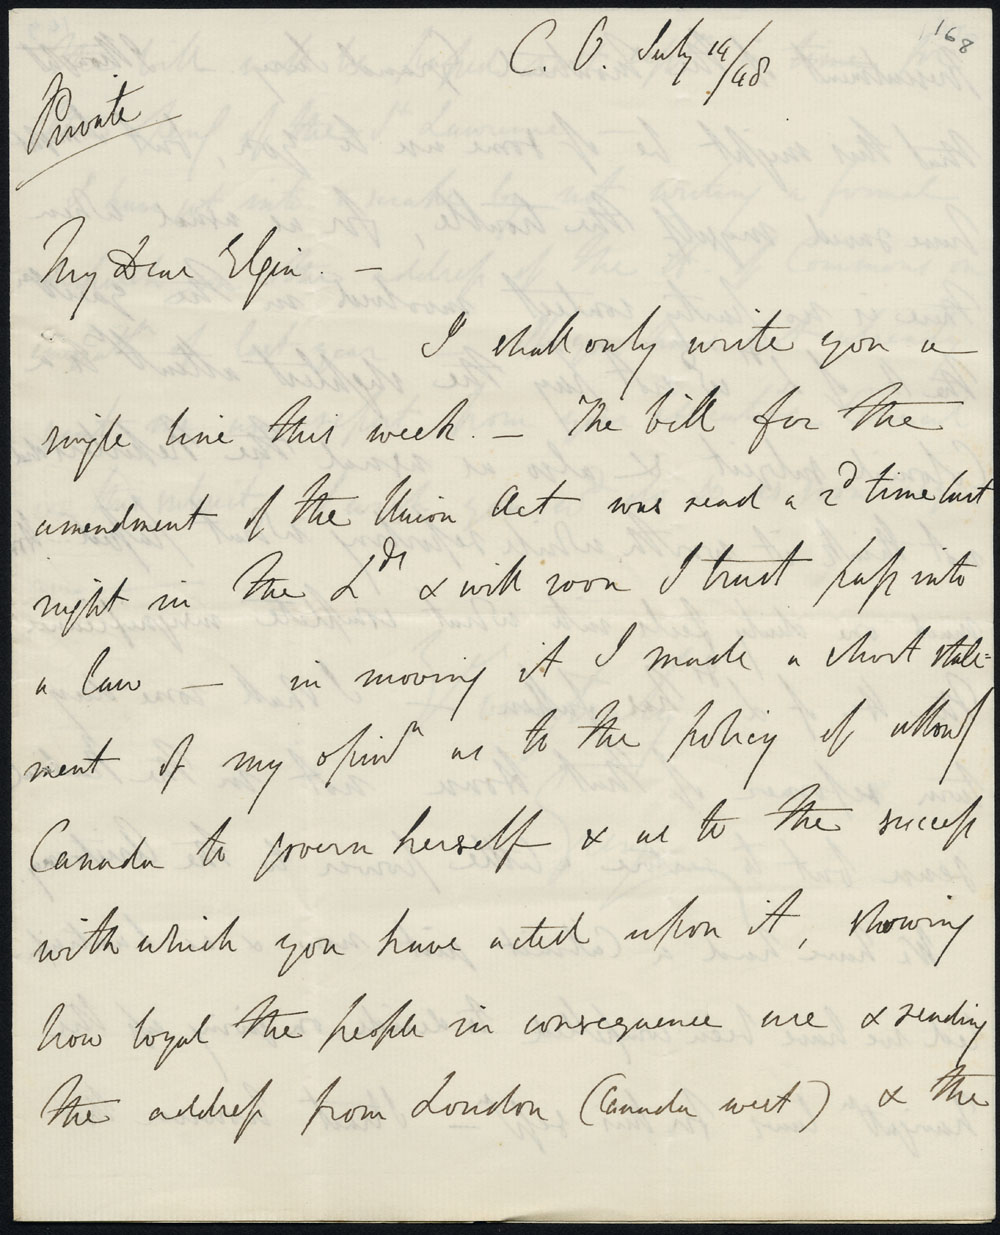 168
C. O. July 19/48
Private
My Dear Elgin. —
I shall only write you a
single line this week. — The bill for the
amendment of the Union Act was read a 2d time last
night in the Lds & will soon I trust pass into
a law — in moving it I made a short state=
ment of my opinn as to the policy of allowg
Canada to govern herself & as to the success
with which you have acted upon it, showing
how loyal the people in consequence are & reading
the address from London (Canada west) & the